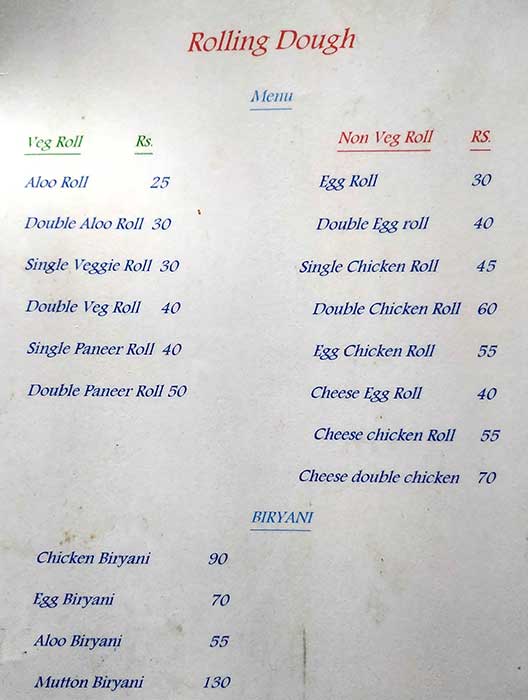 Rolling Dough
Menu
Veg Roll Rs.
Aloo Roll 25
Double Aloo Roll 30
Single Veggie Roll 30
Double Veg Roll 40
Single Paneer Roll 40
Double Paneer Roll 50
Non Veg Roll RS.
Egg Roll 30
Double Egg roll 40
Single Chicken Roll 45
Double Chicken Roll 60
Egg Chicken Roll 55
Cheese Egg Roll 40
Cheese chicken Roll 55
Cheese double chicken 70
BIRYANI
Chicken Biryani 90
Egg Biryani 70
Aloo Biryani 55
Mutton Biryani 130